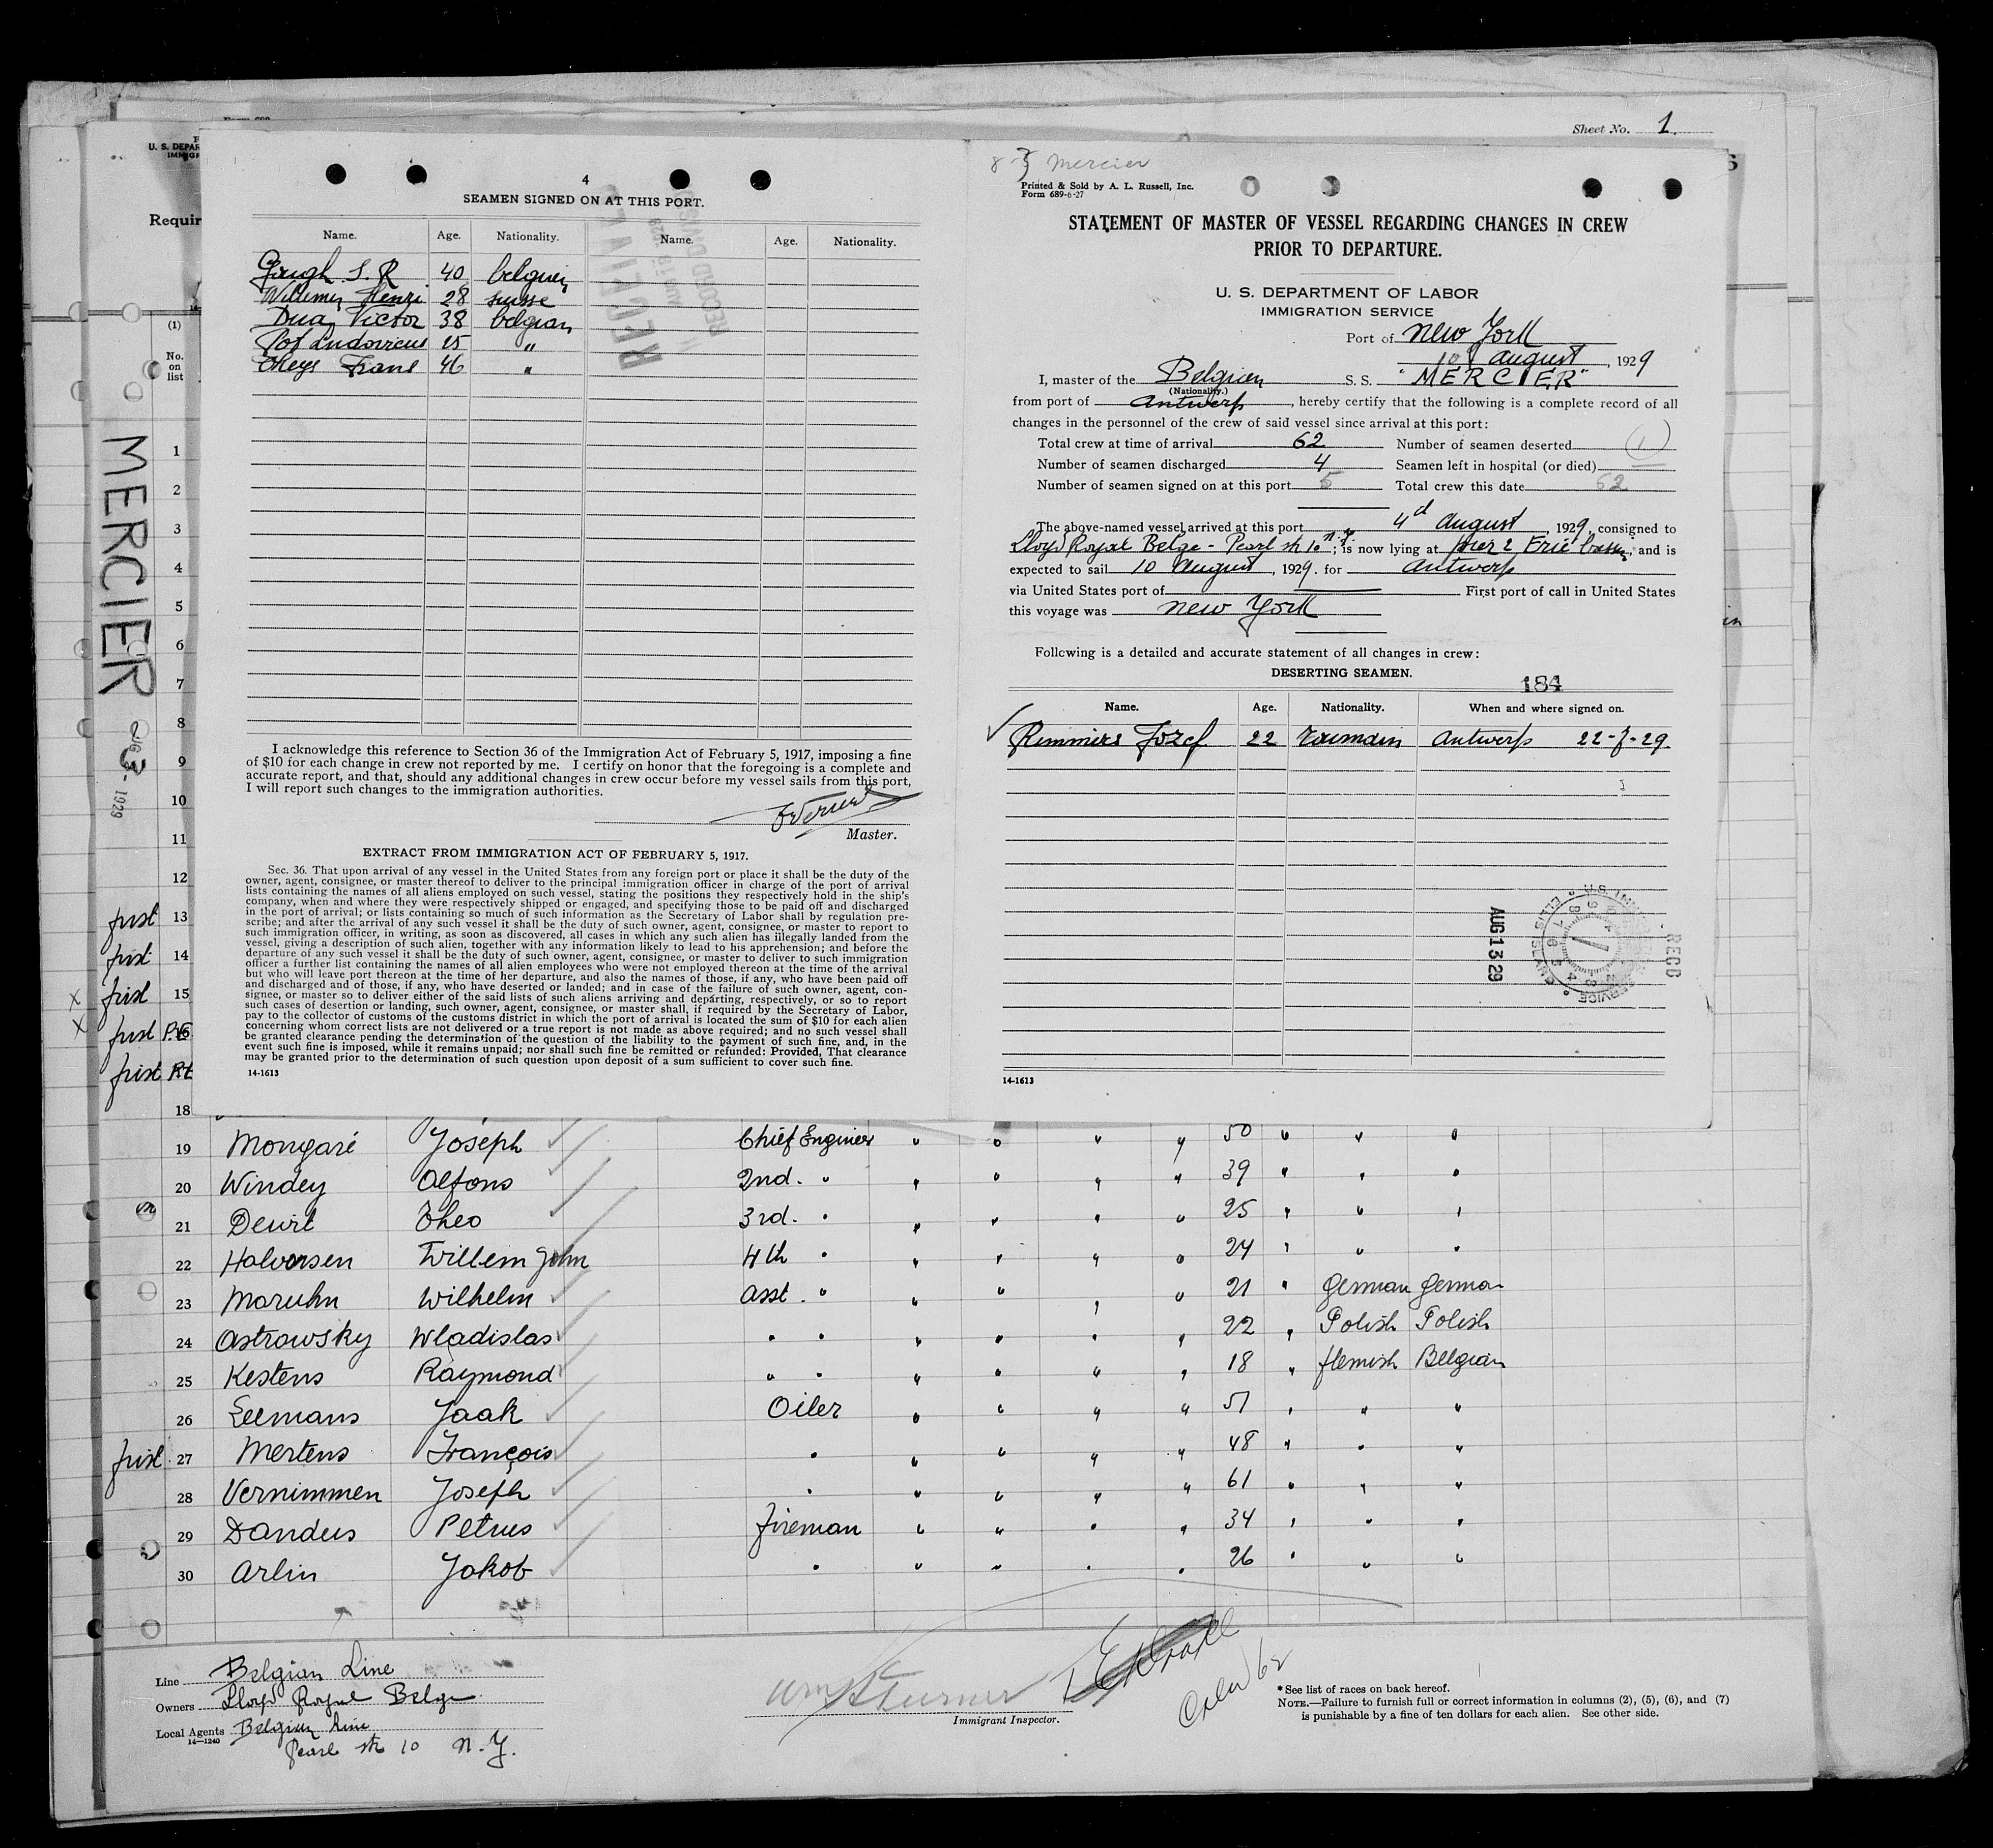 Sheet No. 1.
U. S. DEPAR
IMMIGR
Requir
(1)
No.
on
list
MERCIER
1929
1
2
3
4
5
6
7
8
9
10
11
12
13
14
15
18
4
SEAMEN SIGNED ON AT THIS PORT.
Name. Age. Nationality. Name. Age. Nationality.
Gough S. R 40 belgien
Willemin Henri 28 suisse
Dua Victor 38 belgian
Pof Ludovicus 25 "
Theys Frans 46 "
I acknowledge this reference to Section 36 of the Immigration Act of February 5, 1917, imposing a fine
of $10 for each change in crew not reported by me. I certify on honor that the foregoing is a complete and
accurate report, and that, should any additional changes in crew occur before my vessel sails from this port,
I will report such changes to the immigration authorities.
Master.
EXTRACT FROM IMMIGRATION ACT OF FEBRUARY 5, 1917.
Sec. 36. That upon arrival of any vessel in the United States from any foreign port or place it shall be the duty of the
owner, agent, consignee, or master thereof to deliver to the principal immigration officer in charge of the port of arrival
lists containing the names of all aliens employed on such vessel, stating the positions they respectively hold in the ship's
company, when and where they were respectively shipped or engaged, and specifying those to be paid off and discharged
in the port of arrival; or lists containing so much of such information as the Secretary of Labor shall by regulation pre-
scribe; and after the arrival of any such vessel it shall be the duty of such owner, agent, consignee, or master to report to
such immigration officer, in writing, as soon as discovered, all cases in which any such alien has illegally landed from the
vessel, giving a description of such alien, together with any information likely to lead to his apprehension; and before the
departure of any such vessel it shall be the duty of such owner, agent, consignee, or master to deliver to such immigration
officer a further list containing the names of all alien employees who were not employed thereon at the time of the arrival
but who will leave port thereon at the time of her departure, and also the names of those, if any, who have been paid off
and discharged and of those, if any, who have deserted or landed; and in case of the failure of such owner, agent, con-
signee, or master so to deliver either of the said lists of such aliens arriving and departing, respectively, or so to report
such cases of desertion or landing, such owner, agent, consignee, or master shall, if required by the Secretary of Labor,
pay to the collector of customs of the customs district in which the port of arrival is located the sum of $10 for each alien
concerning whom correct lists are not delivered or a true report is not made as above required; and no such vessel shall
be granted clearance pending the determination of the question of the liability to the payment of such fine, and, in the
event such fine is imposed, while it remains unpaid; nor shall such fine be remitted or refunded: Provided, That clearance
may be granted prior to the determination of such question upon deposit of a sum sufficient to cover such fine.
14-1613
Mercier
Printed & Sold by A. L. Russell, Inc.
Form 689-6-27
STATEMENT OF MASTER OF VESSEL REGARDING CHANGES IN CREW
PRIOR TO DEPARTURE.
U. S. DEPARTMENT OF LABOR
IMMIGRATION SERVICE
Port of New York
10 August, 1929
I, master of the Belgian S. S. "MERCIER"
(Nationality.)
from port of Antwerp, hereby certify that the following is a complete record of all
changes in the personnel of the crew of said vessel since arrival at this port:
Total crew at time of arrival 62 Number of seamen deserted (1)
Number of seamen discharged 4 Seamen left in hospital (or died) —
Number of seamen signed on at this port 5 Total crew this date 62
The above-named vessel arrived at this port 4d August, 1929, consigned to
Lloyd Royal Belge - Pearl str 10 N.Y.; is now lying at pier 2 Erie basin, and is
expected to sail 10 August, 1929. for Antwerp
via United States port of First port of call in United States
this voyage was New York
Following is a detailed and accurate statement of all changes in crew:
DESERTING SEAMEN.
184
Name. Age. Nationality. When and where signed on.
Rimmers Jozef 22 roumain Antwerp 22-7-29.
AUG 13 29
RECD
14-1613
19 Mongaré Joseph Chief Engineer " " " " 50 " " "
20 Windey Alfons 2nd. " " " " " 39 " " "
21 Dewit Theo 3rd. " " " " " 25 " " "
22 Halvorsen Willem John 4th " " " " " 24 " " "
23 Maruhn Wilhelm asst. " " " " " 21 " German German
24 Astrowsky Wladislas " " " " " " 22 " Polish Polish
25 Kestens Raymond " " " " " " 18 " flemish Belgian
26 Leemans Jaak Oiler " " " " 51 " " "
first 27 Mertens François " " " " " 48 " " "
28 Vernimmen Joseph " " " " " 61 " " "
29 Dandus Petrus fireman " " " " 34 " " "
30 Arlin Jakob " " " " " 26 " " "
Line Belgian Line
Owners Lloyd Royal Belge
Local Agents Belgian Line
14-1240
Pearl str 10 N.Y.
Immigrant Inspector.
*See list of races on back hereof.
NOTE.—Failure to furnish full or correct information in columns (2), (5), (6), and (7)
is punishable by a fine of ten dollars for each alien. See other side.